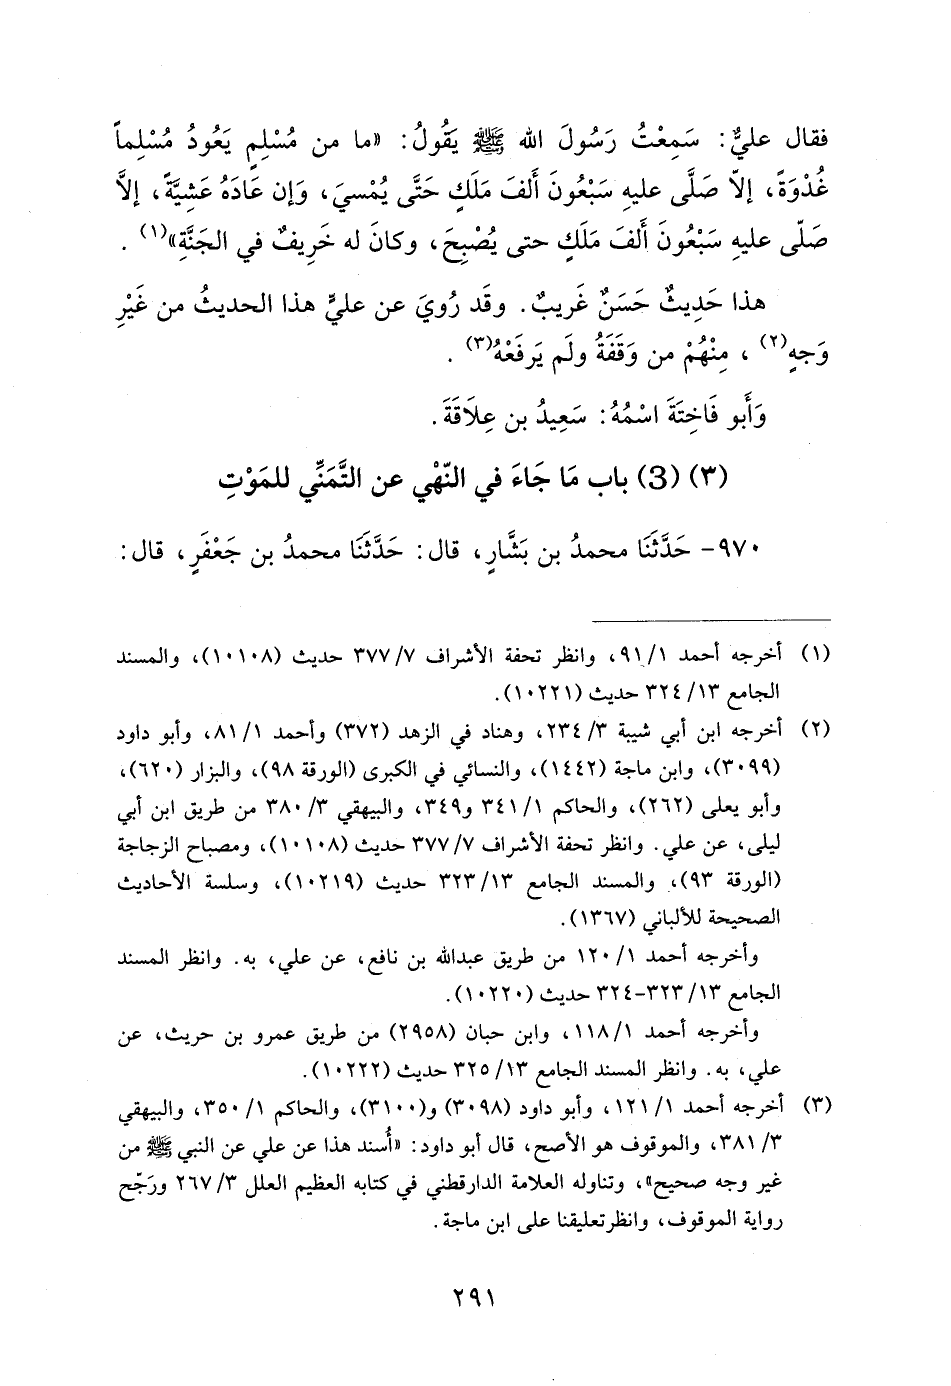 فقال عليٌّ: سَمِعْتُ رَسُولَ الله ﷺ يَقُولُ: «ما من مُسْلِمٍ يَعُودُ مُسْلِماً
غُدْوَةً، إلاّ صَلَّى عليه سَبْعُونَ أَلفَ مَلَكٍ حَتَّى يُمْسيَ، وَإن عَادَهُ عَشِيَّةً، إلاَّ
صَلّى عليه سَبْعُونَ أَلفَ مَلَكٍ حتى يُصْبِحَ، وكانَ له خَرِيفٌ في الجَنَّةِ»(١) .
هذا حَدِيثٌ حَسَنٌ غَريبٌ. وقَد رُويَ عن عليٍّ هذا الحديثُ من غَيْرِ
وَجهٍ(٢) ، مِنْهُمْ من وَقَفَهُ ولَم يَرفَعْهُ(٣) .
وَأَبو فَاخِتَةَ اسْمُهُ: سَعِيدُ بن عِلاَقَةَ.
(٣) (3) باب مَا جَاءَ في النّهْي عن التَّمَنِّي للمَوْتِ
٩٧٠- حَدَّثَنَا محمدُ بن بَشَّارٍ، قال: حَدَّثَنَا محمدُ بن جَعْفَرٍ، قال:
(١) أخرجه أحمد ١/ ٩١، وانظر تحفة الأشراف ٧/ ٣٧٧ حديث (١٠١٠٨)، والمسند
الجامع ١٣/ ٣٢٤ حديث (١٠٢٢١).
(٢) أخرجه ابن أبي شيبة ٣/ ٢٣٤، وهناد في الزهد (٣٧٢) وأحمد ١/ ٨١، وأبو داود
(٣٠٩٩)، وابن ماجة (١٤٤٢)، والنسائي في الكبرى (الورقة ٩٨)، والبزار (٦٢٠)،
وأبو يعلى (٢٦٢)، والحاكم ١/ ٣٤١ و٣٤٩، والبيهقي ٣/ ٣٨٠ من طريق ابن أبي
ليلى، عن علي. وانظر تحفة الأشراف ٧/ ٣٧٧ حديث (١٠١٠٨)، ومصباح الزجاجة
(الورقة ٩٣)، والمسند الجامع ١٣/ ٣٢٣ حديث (١٠٢١٩)، وسلسة الأحاديث
الصحيحة للألباني (١٣٦٧).
وأخرجه أحمد ١/ ١٢٠ من طريق عبدالله بن نافع، عن علي، به. وانظر المسند
الجامع ١٣/ ٣٢٣-٣٢٤ حديث (١٠٢٢٠).
وأخرجه أحمد ١/ ١١٨، وابن حبان (٢٩٥٨) من طريق عمرو بن حريث، عن
علي، به. وانظر المسند الجامع ١٣/ ٣٢٥ حديث (١٠٢٢٢).
(٣) أخرجه أحمد ١/ ١٢١، وأبو داود (٣٠٩٨) و(٣١٠٠)، والحاكم ١/ ٣٥٠، والبيهقي
٣/ ٣٨١، والموقوف هو الأصح، قال أبو داود: «أُسند هذا عن علي عن النبي ﷺ من
غير وجه صحيح»، وتناوله العلامة الدارقطني في كتابه العظيم العلل ٣/ ٢٦٧ ورَجّح
رواية الموقوف، وانظرتعليقنا على ابن ماجة.
٢٩١